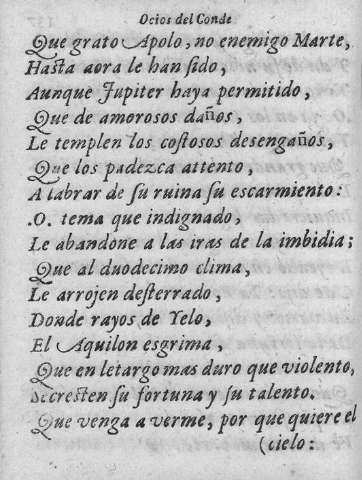 Ocios del Conde
Que grato Apolo, no enemigo Marte,
Hasta aora le han sido,
Aunque Jupiter haya permitido,
Que de amorosos daños,
Le templen los costosos desengaños,
Que los padezca attento,
A labrar de su ruina su escarmiento:
.O. tema que indignado,
Le abandone a las iras de la imbidia;
Que al duodecimo clima,
Le arrojen desterrado,
Donde rayos de Yelo,
El Aquilon esgrima,
Que en letargo mas duro que violento,
Secresten su fortuna y su talento.
Que venga a verme, por que quiere el
(cielo: